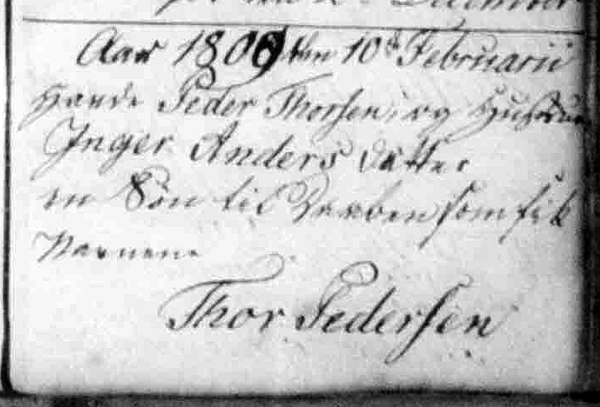 December
Aar 1806 den 10de Februarii
Havde Peder Thorsen, og Hustrue
Inger Anders Datter
en Sön til Daaben som fik
Navnene
Thor Pedersen